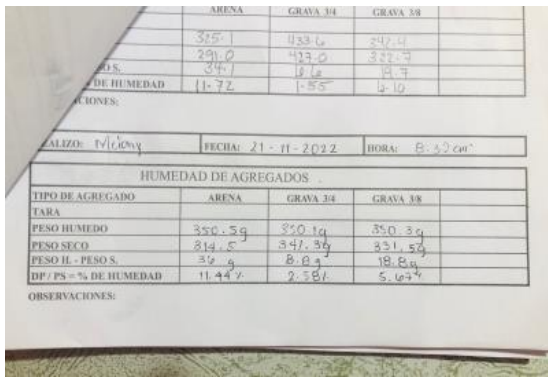 ARENA GRAVA 3/4 GRAVA 3/8
325.1 433.6 342.4
291.0 427.0 322.7
O S. 34.1 6.6 19.7
DE HUMEDAD 11.72 1.55 6.10
CIONES:
EALIZO: FECHA: 21-11-2022 HORA: 8:32 am
HUMEDAD DE AGREGADOS
TIPO DE AGREGADO ARENA GRAVA 3/4 GRAVA 3/8
TARA
PESO HUMEDO 350.5g 350.1g 350.3g
PESO SECO 314.5 341.3g 331.5g
PESO H. - PESO S. 36 g 8.8g 18.8g
DP / PS = % DE HUMEDAD 11.44% 2.58% 5.67%
OBSERVACIONES: